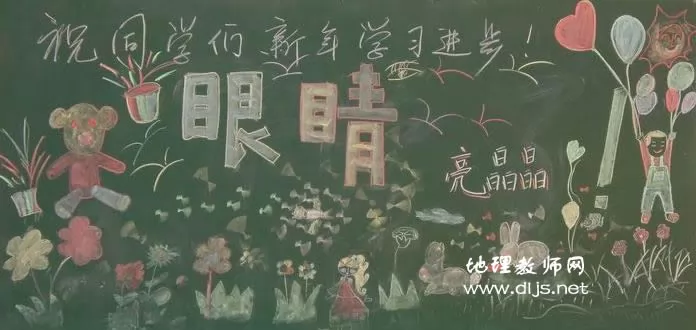 祝同学们新年学习进步!
眼睛
亮晶晶
地理教师网
www.dljs.net